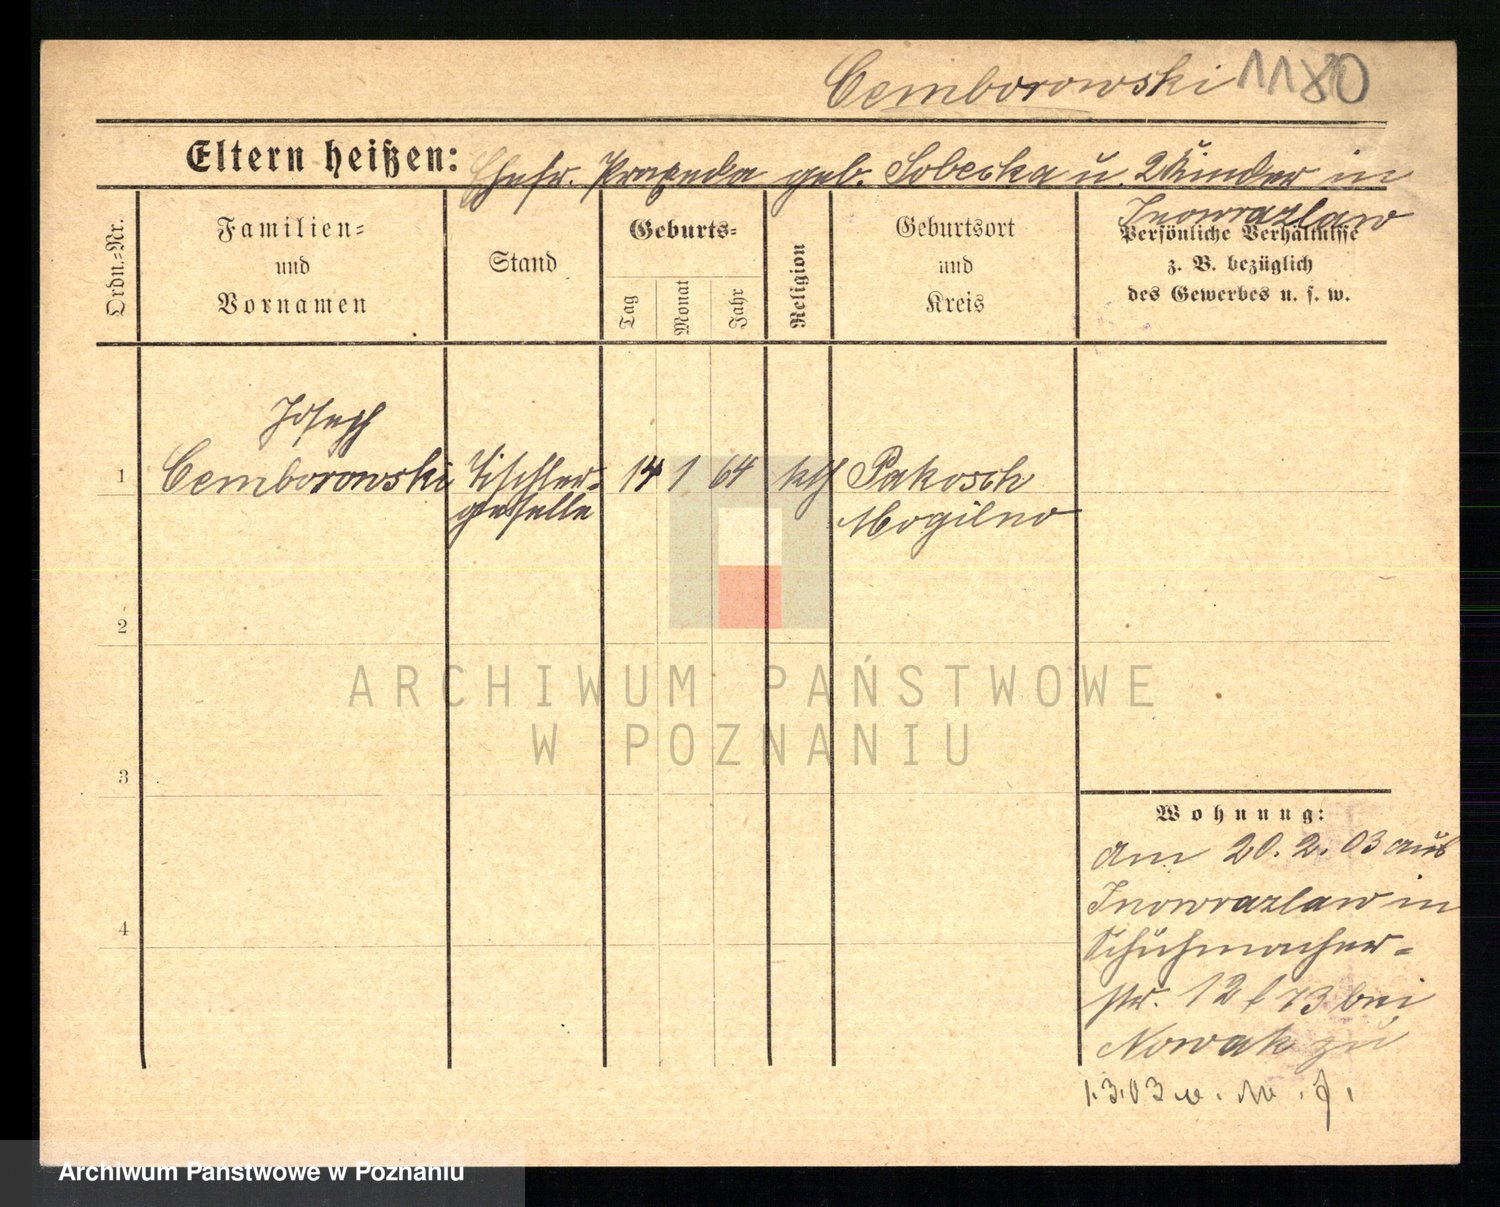 Cemborowski 1180
Eltern heißen: Ehefr. Praxeda geb. Sobecka u. 2 Kinder in
Inowrazlaw
Ordn.-Nr.
Familien-
und
Vornamen
Stand
Geburts-
Tag
Monat
Jahr
Religion
Geburtsort
und
Kreis
Persönliche Verhältnisse
z. B. bezüglich
des Gewerbes u. s. w.
Joseph
1 Cemborowski Tischler- 14 1 64 kth Pakosch
geselle Mogilno
2
3
4
Wohnung:
Am 20. 2. 03 aus
Inowrazlaw in
Schuhmacher-
str. 12 b/ 73 bei
Nowak zu
1.3.03
ARCHIWUM PAŃSTWOWE
W POZNANIU
Archiwum Państwowe w Poznaniu